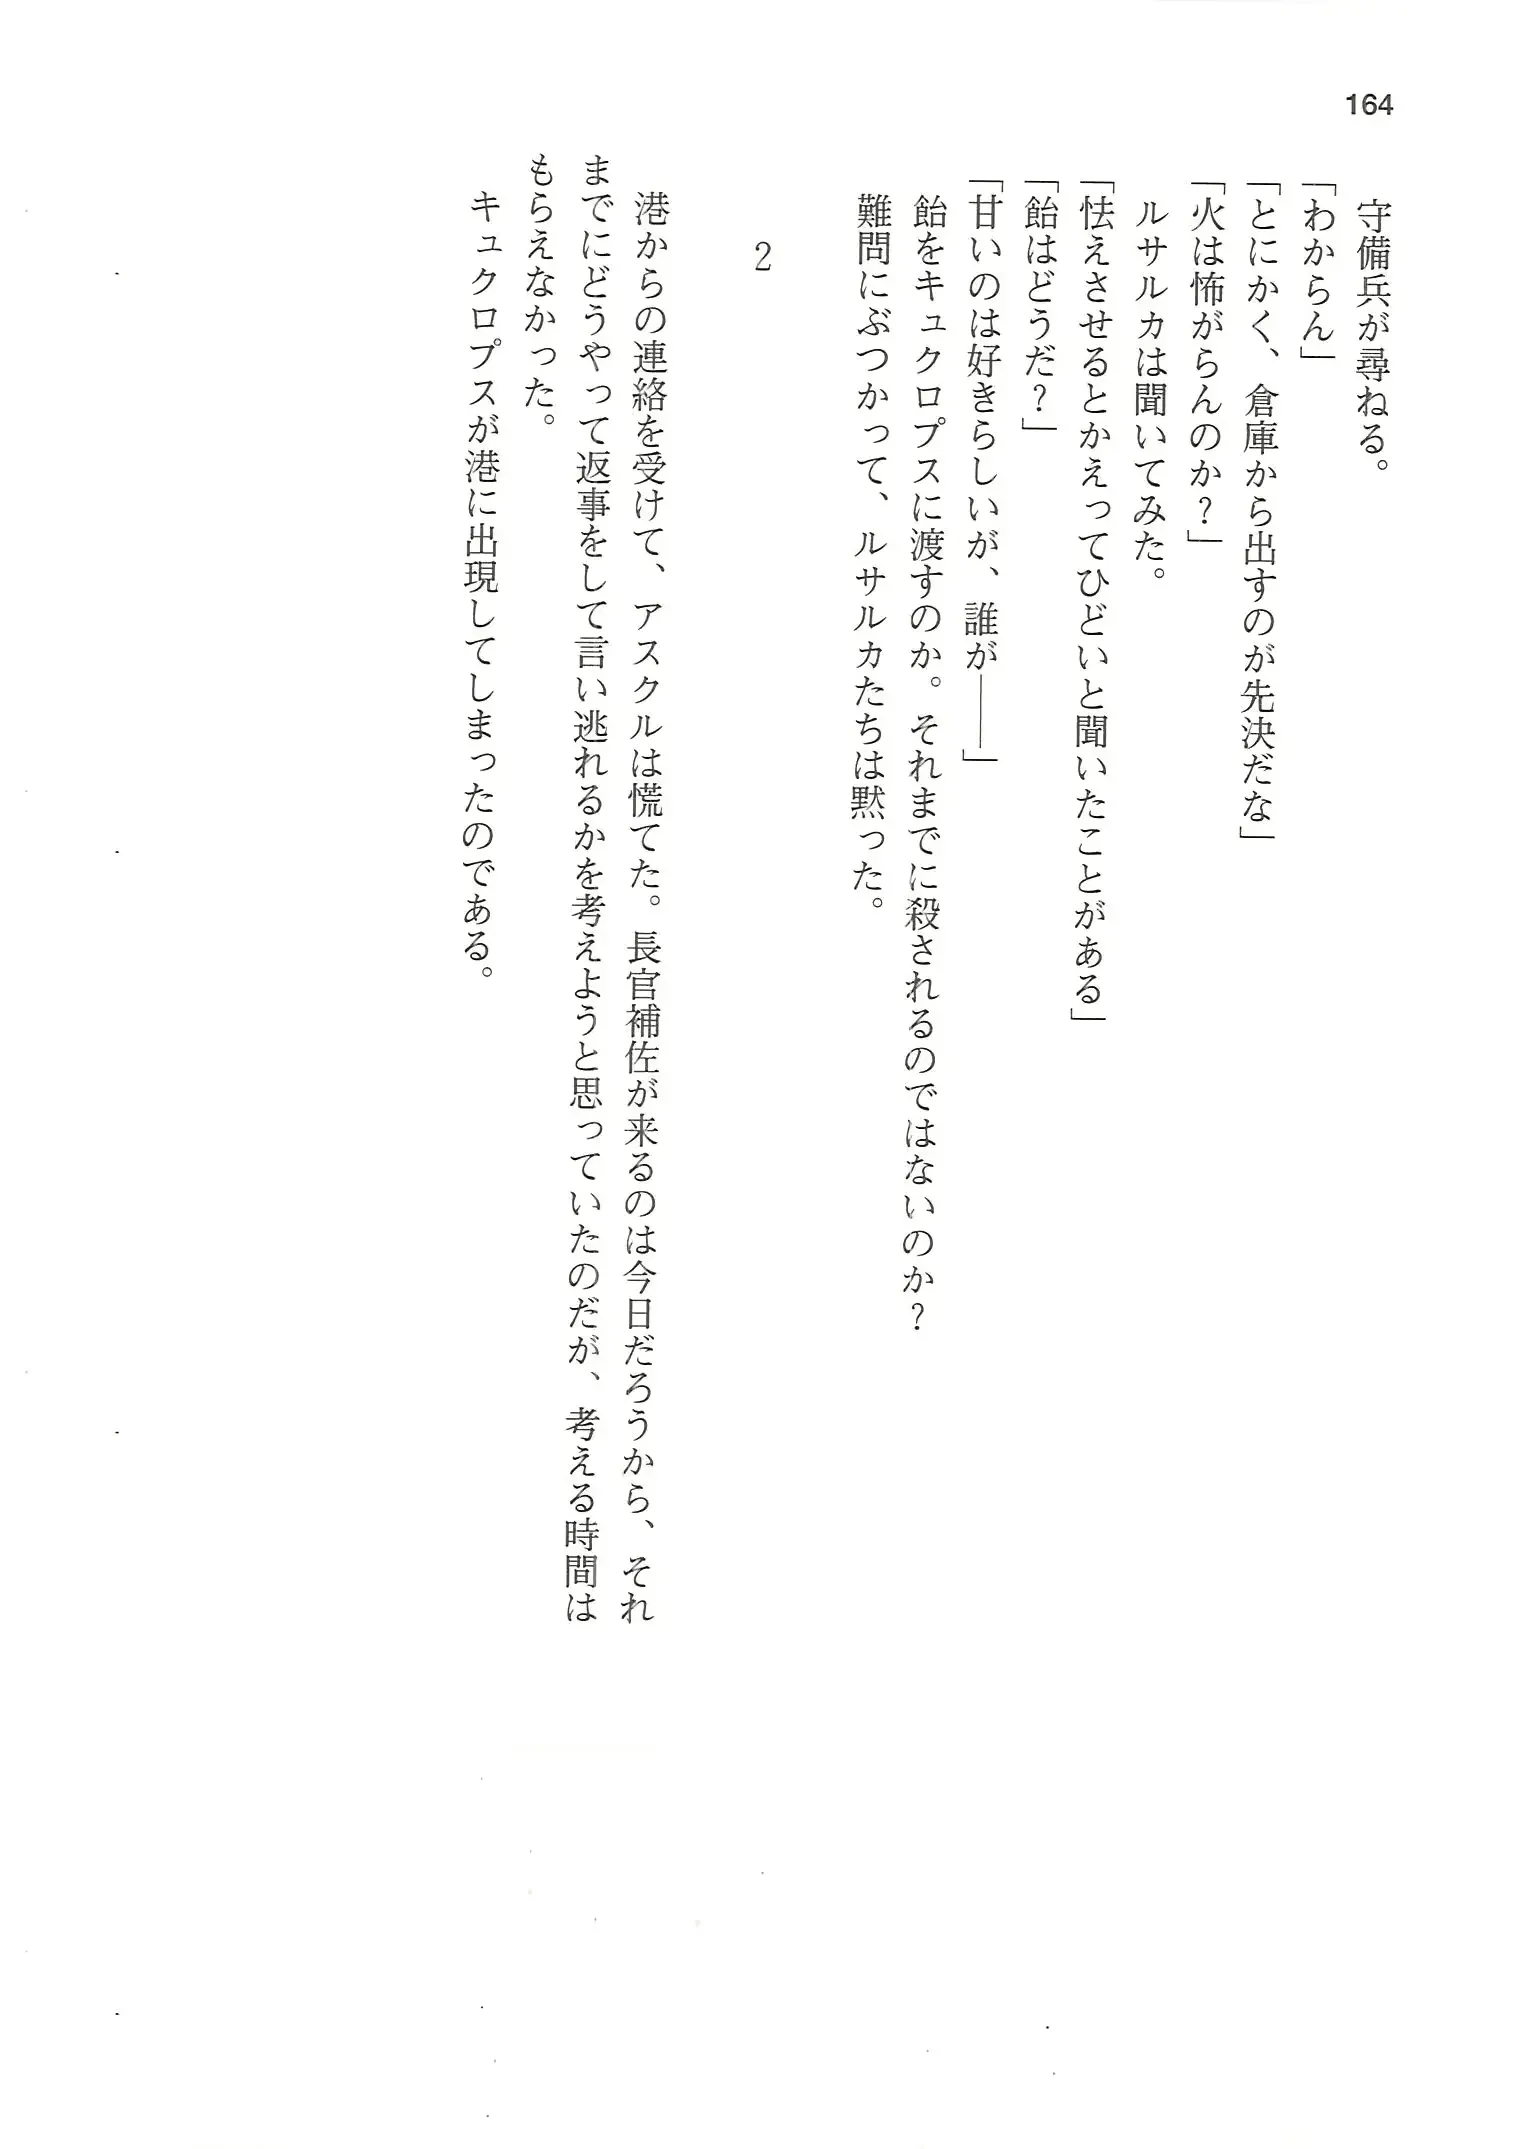 164
守備兵が尋ねる。
「わからん」
「とにかく、倉庫から出すのが先決だな」
「火は怖がらんのか？」
ルサルカは聞いてみた。
「怯えさせるとかえってひどいと聞いたことがある」
「飴はどうだ？」
「甘いのは好きらしいが、誰が――」
飴をキュクロプスに渡すのか。それまでに殺されるのではないのか？
難問にぶつかって、ルサルカたちは黙った。
2
港からの連絡を受けて、アスクルは慌てた。長官補佐が来るのは今日だろうから、それ
までにどうやって返事をして言い逃れるかを考えようと思っていたのだが、考える時間は
もらえなかった。
キュクロプスが港に出現してしまったのである。